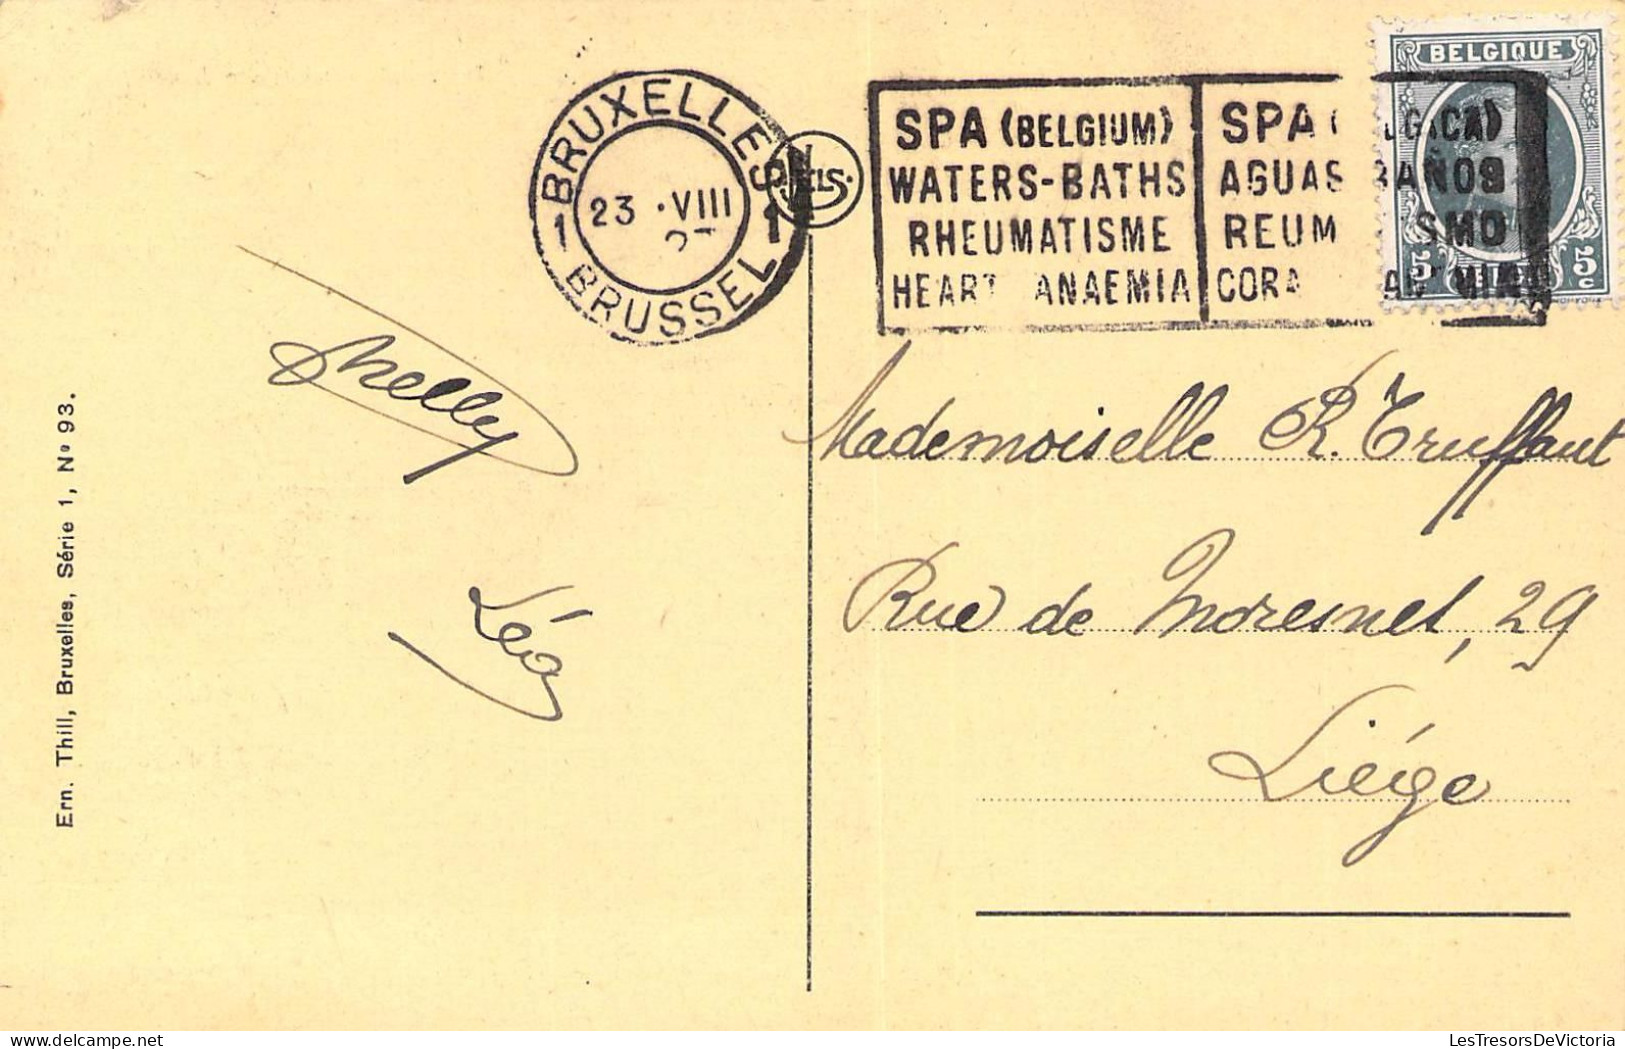 BRUXELLES
1 1
23 VIII
BRUSSEL
NELS
SPA (BELGIUM)
WATERS-BATHS
RHEUMATISME
HEART ANAEMIA
SPA
AGUAS BANOS
REUM SMO
CORA
BELGIQUE
5c 5c
Nelly
Léo
Mademoiselle R. Truffaut
Rue de Moresnet, 29
Liége
Ern. Thill, Bruxelles, Série 1, Nº 93.
LesTresorsDeVictoria